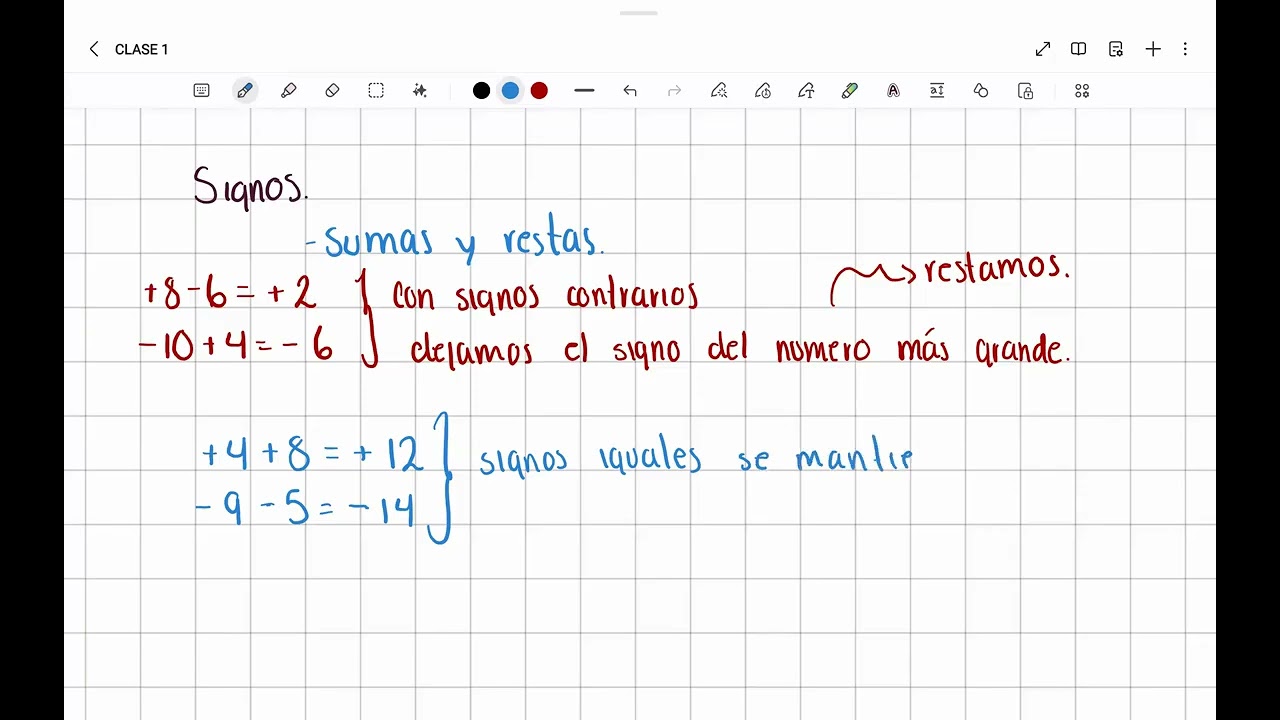 CLASE 1
Signos.
- sumas y restas.
+8-6=+2 } con signos contrarios
restamos.
-10+4=-6 dejamos el signo del numero más grande.
+4+8=+12 } signos iguales se mantie
-9-5=-14